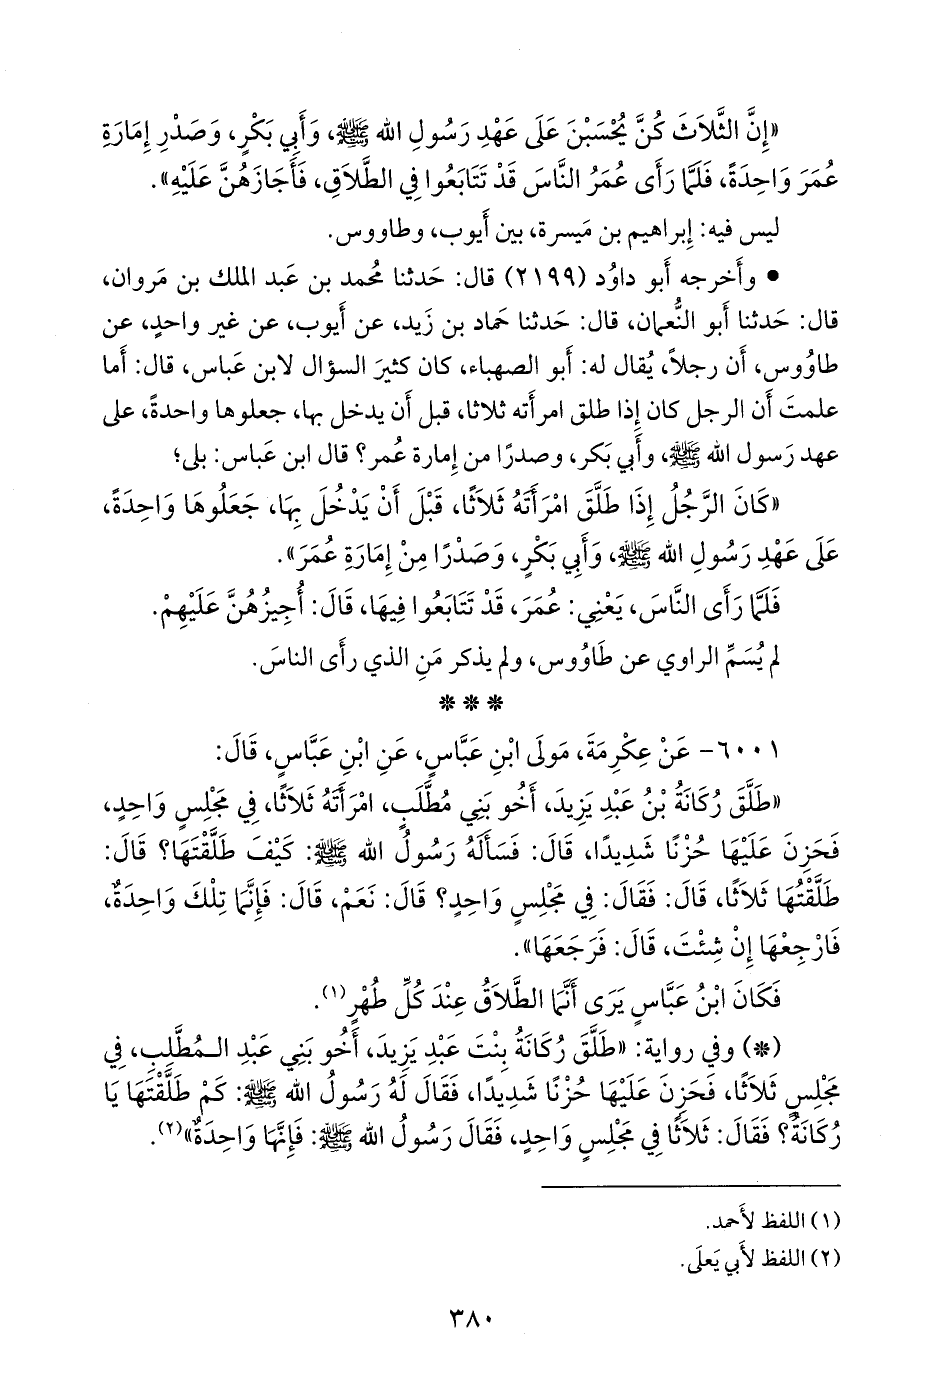 «إِنَّ الثَّلَاثَ كُنَّ يُحْسَبْنَ عَلَى عَهْدِ رَسُولِ الله ﷺ، وَأَبِي بَكْرٍ، وَصَدْرِ إِمَارَةِ
عُمَرَ وَاحِدَةً، فَلَمَّا رَأَى عُمَرُ النَّاسَ قَدْ تَتَابَعُوا فِي الطَّلَاقِ، فَأَجَازَهُنَّ عَلَيْهِ».
ليس فيه: إِبراهيم بن مَيسرة، بين أَيوب، وطاووس.
• وأَخرجه أَبو داوُد (٢١٩٩) قال: حَدثنا مُحمد بن عَبد الملك بن مَروان،
قال: حَدثنا أَبو النُّعمان، قال: حَدثنا حَماد بن زَيد، عن أَيوب، عن غير واحدٍ، عن
طاوُوس، أَن رجلاً، يُقال له: أَبو الصهباء، كان كثيرَ السؤال لابن عَباس، قال: أَما
علمتَ أَن الرجل كان إِذا طلق امرأَته ثلاثا، قبل أَن يدخل بها، جعلوها واحدةً، على
عهد رَسول الله ﷺ، وأَبي بَكر، وصدرًا من إِمارة عُمر؟ قال ابن عَباس: بلى؛
«كَانَ الرَّجُلُ إِذَا طَلَّقَ امْرَأَتَهُ ثَلَاثًا، قَبْلَ أَنْ يَدْخُلَ بِهَا، جَعَلُوهَا وَاحِدَةً،
عَلَى عَهْدِ رَسُولِ الله ﷺ، وَأَبِي بَكْرٍ، وَصَدْرًا مِنْ إِمَارَةِ عُمَرَ».
فَلَمَّا رَأَى النَّاسَ، يَعْنِي: عُمَرَ، قَدْ تَتَابَعُوا فِيهَا، قَالَ: أُجِيزُهُنَّ عَلَيْهِمْ.
لم يُسَمِّ الراوي عن طَاوُوس، ولم يذكر مَنِ الذي رأَى الناسَ.
* * *
٦٠٠١ - عَنْ عِكْرِمَةَ، مَوْلَى ابْنِ عَبَّاسٍ، عَنِ ابْنِ عَبَّاسٍ، قَالَ:
«طَلَّقَ رُكَانَةُ بْنُ عَبْدِ يَزِيدَ، أَخُو بَنِي مُطَّلِبٍ، امْرَأَتَهُ ثَلَاثًا، فِي مَجْلِسٍ وَاحِدٍ،
فَحَزِنَ عَلَيْهَا حُزْنًا شَدِيدًا، قَالَ: فَسَأَلَهُ رَسُولُ الله ﷺ: كَيْفَ طَلَّقْتَهَا؟ قَالَ:
طَلَّقْتُهَا ثَلَاثًا، قَالَ: فَقَالَ: فِي مَجْلِسٍ وَاحِدٍ؟ قَالَ: نَعَمْ، قَالَ: فَإِنَّمَا تِلْكَ وَاحِدَةٌ،
فَارْجِعْهَا إِنْ شِئْتَ، قَالَ: فَرَجَعَهَا».
فَكَانَ ابْنُ عَبَّاسٍ يَرَى أَنَّمَا الطَّلَاقُ عِنْدَ كُلِّ طُهْرٍ(١).
(*) وفي رواية: «طَلَّقَ رُكَانَةُ بِنْتَ عَبْدِ يَزِيدَ، أَخُو بَنِي عَبْدِ الـمُطَّلِبِ، فِي
مَجْلِسٍ ثَلَاثًا، فَحَزِنَ عَلَيْهَا حُزْنًا شَدِيدًا، فَقَالَ لَهُ رَسُولُ الله ﷺ: كَمْ طَلَّقْتَهَا يَا
رُكَانَةُ؟ فَقَالَ: ثَلَاثًا فِي مَجْلِسٍ وَاحِدٍ، فَقَالَ رَسُولُ الله ﷺ: فَإِنَّهَا وَاحِدَةٌ»(٢).
(١) اللفظ لأَحمد.
(٢) اللفظ لأَبي يَعلَى.
٣٨٠